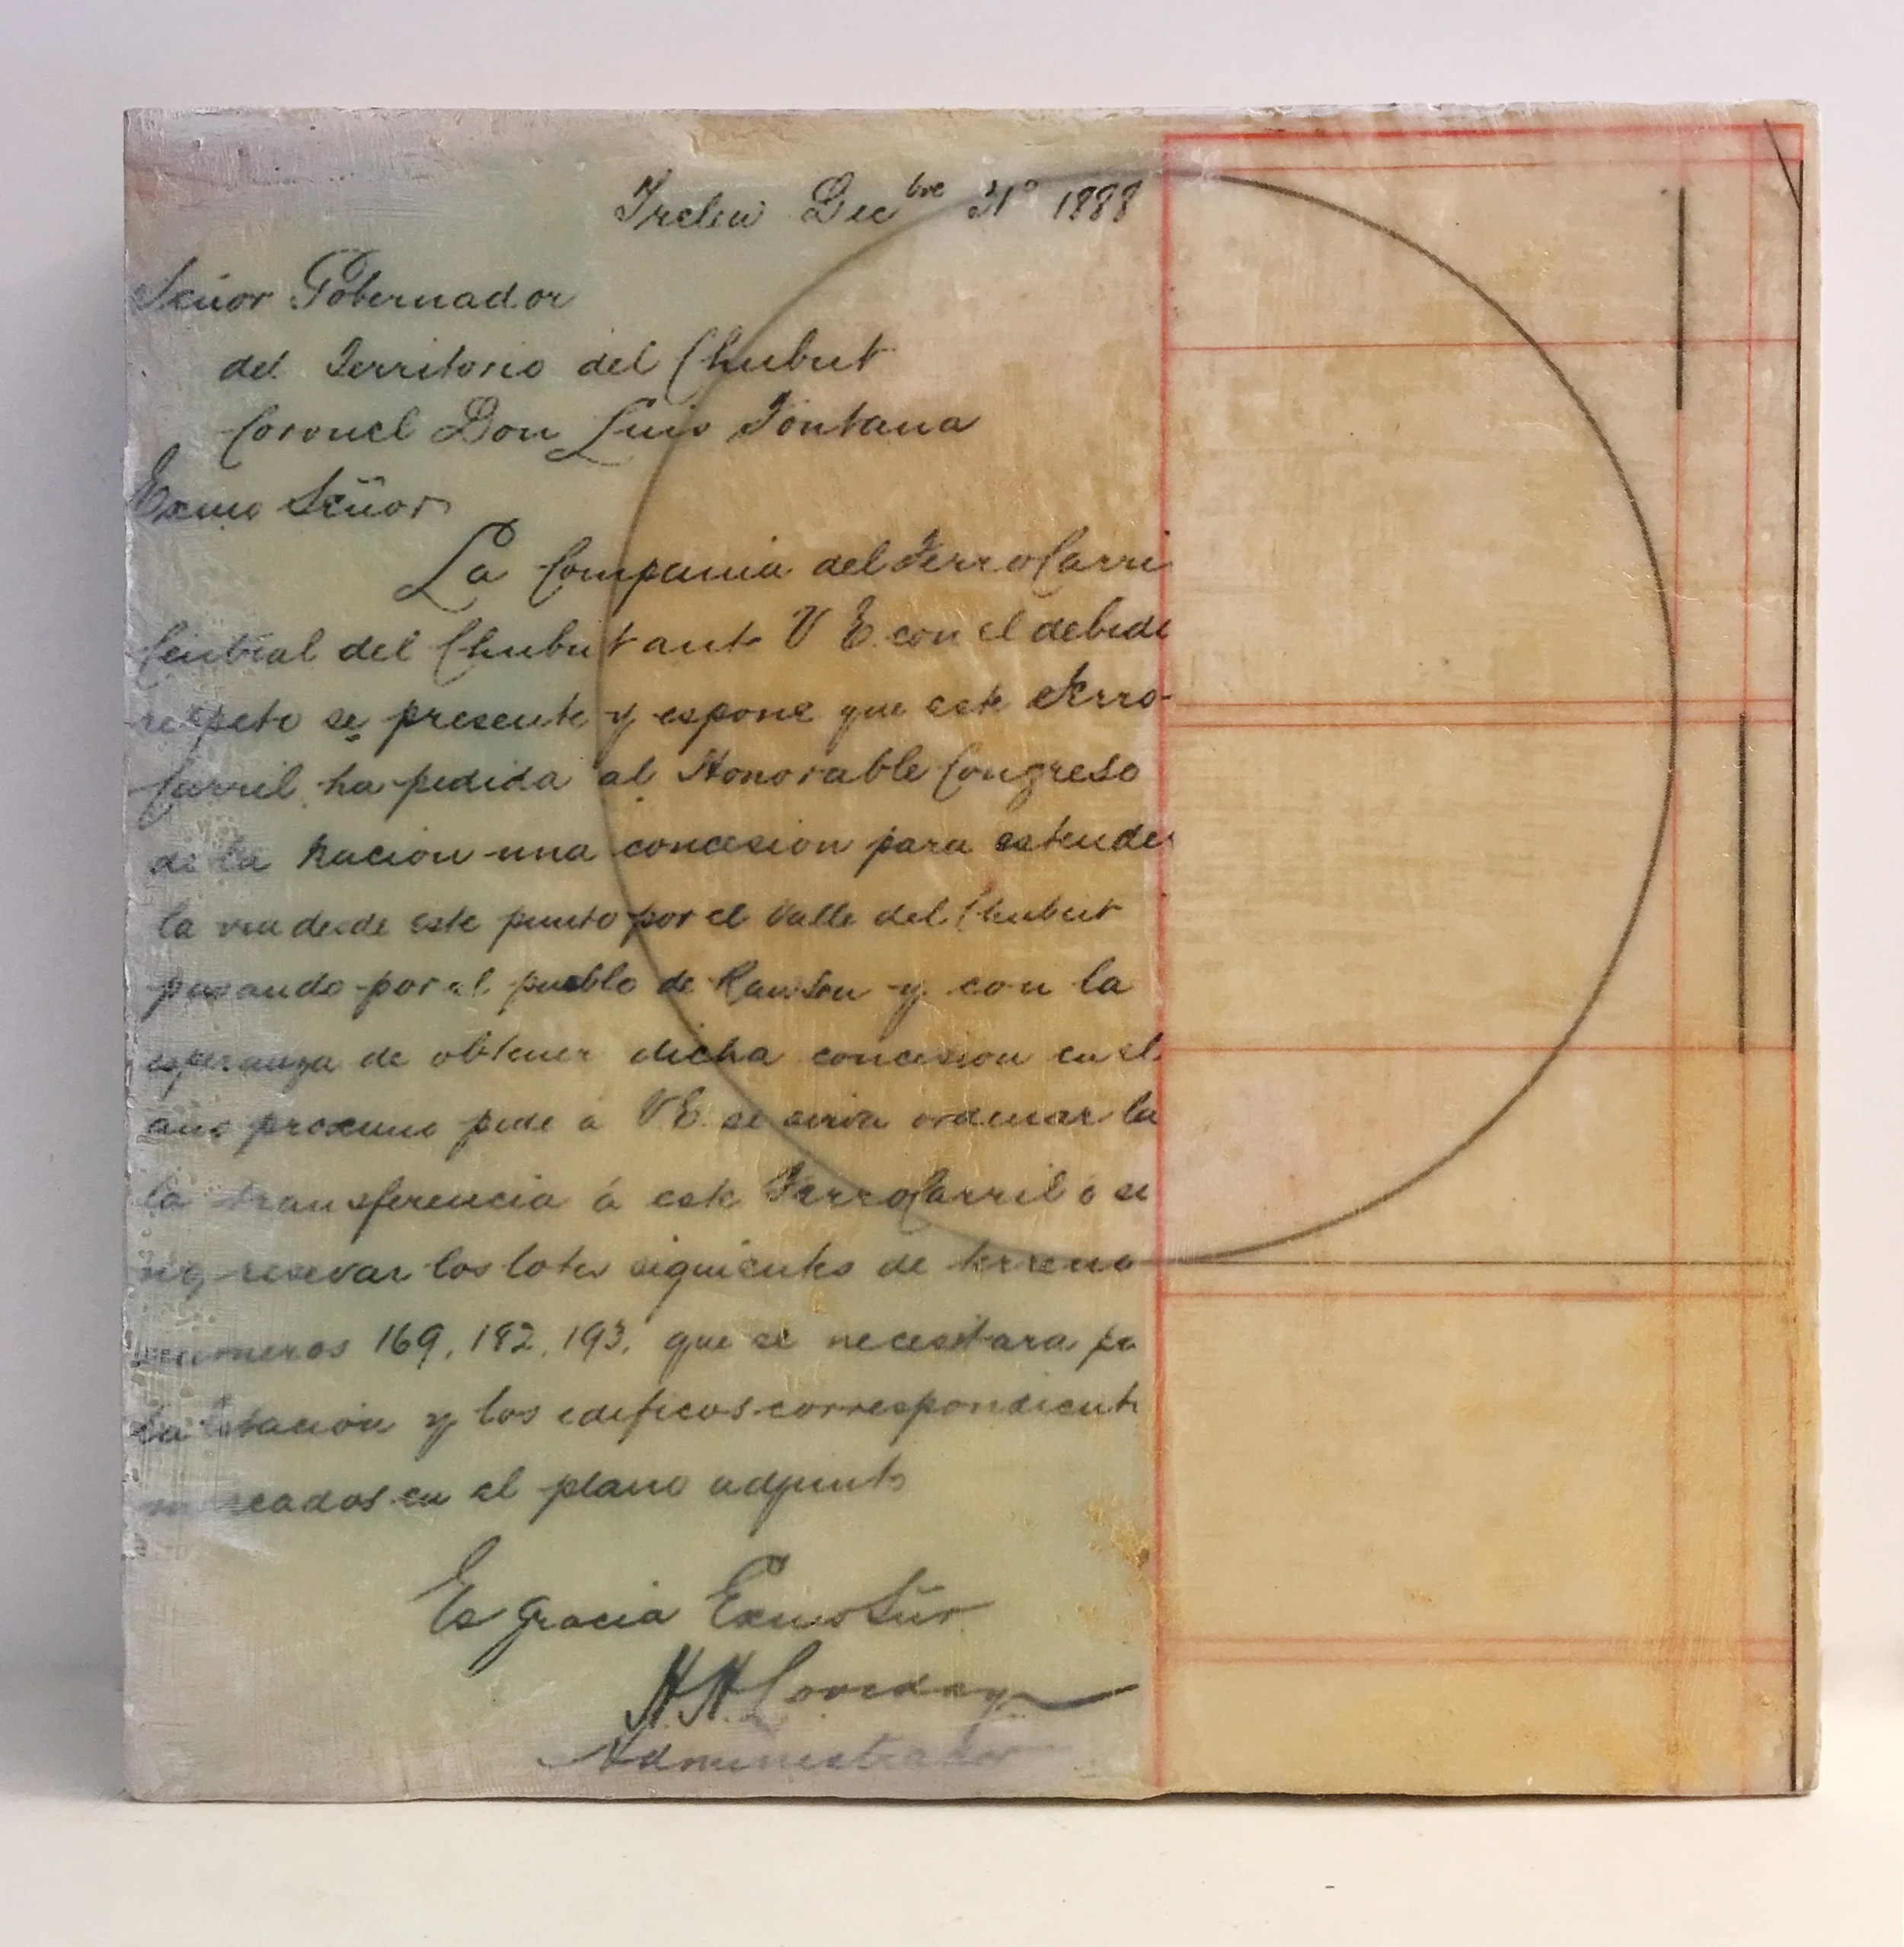 Trelew Decbre 31º 1888
Señor Gobernador
del Territorio del Chubut
Coronel Don Luis Fontana
Exmo Señor
La Compania del Ferro Carri
Central del Chubut ante V E. con el debido
respeto se presente y espone que este Ferro-
Carril ha pedida al Honorable Congreso
de la Nacion una concesion para estender
la via desde este punto por el Valle del Chubut
pasando por el pueblo de Rawson y con la
esperanza de obtener dicha concesion en el
año proximo pide a V E. se sirva ordenar la
la transferencia á este Ferro Carril ó si
no reservar los lotes siguientes de terreno
numeros 169, 182, 193, que se necesitara pa
la Estación y los edificos correspondiente
marcados en el plano adjunto
Es gracia Exmo Sñr
H. H. Loveday
Administrador